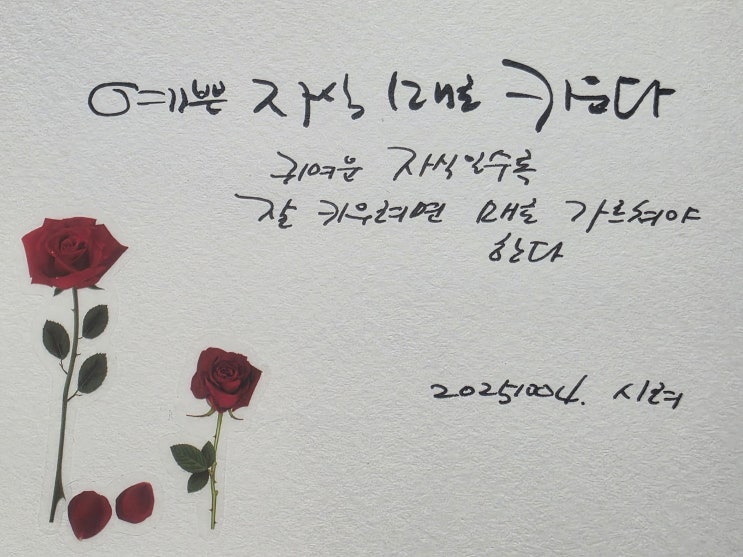 예쁜 자식 매로 키운다
귀여운 자식일수록
잘 키우려면 매로 가르쳐야
한다
20251004. 시혀